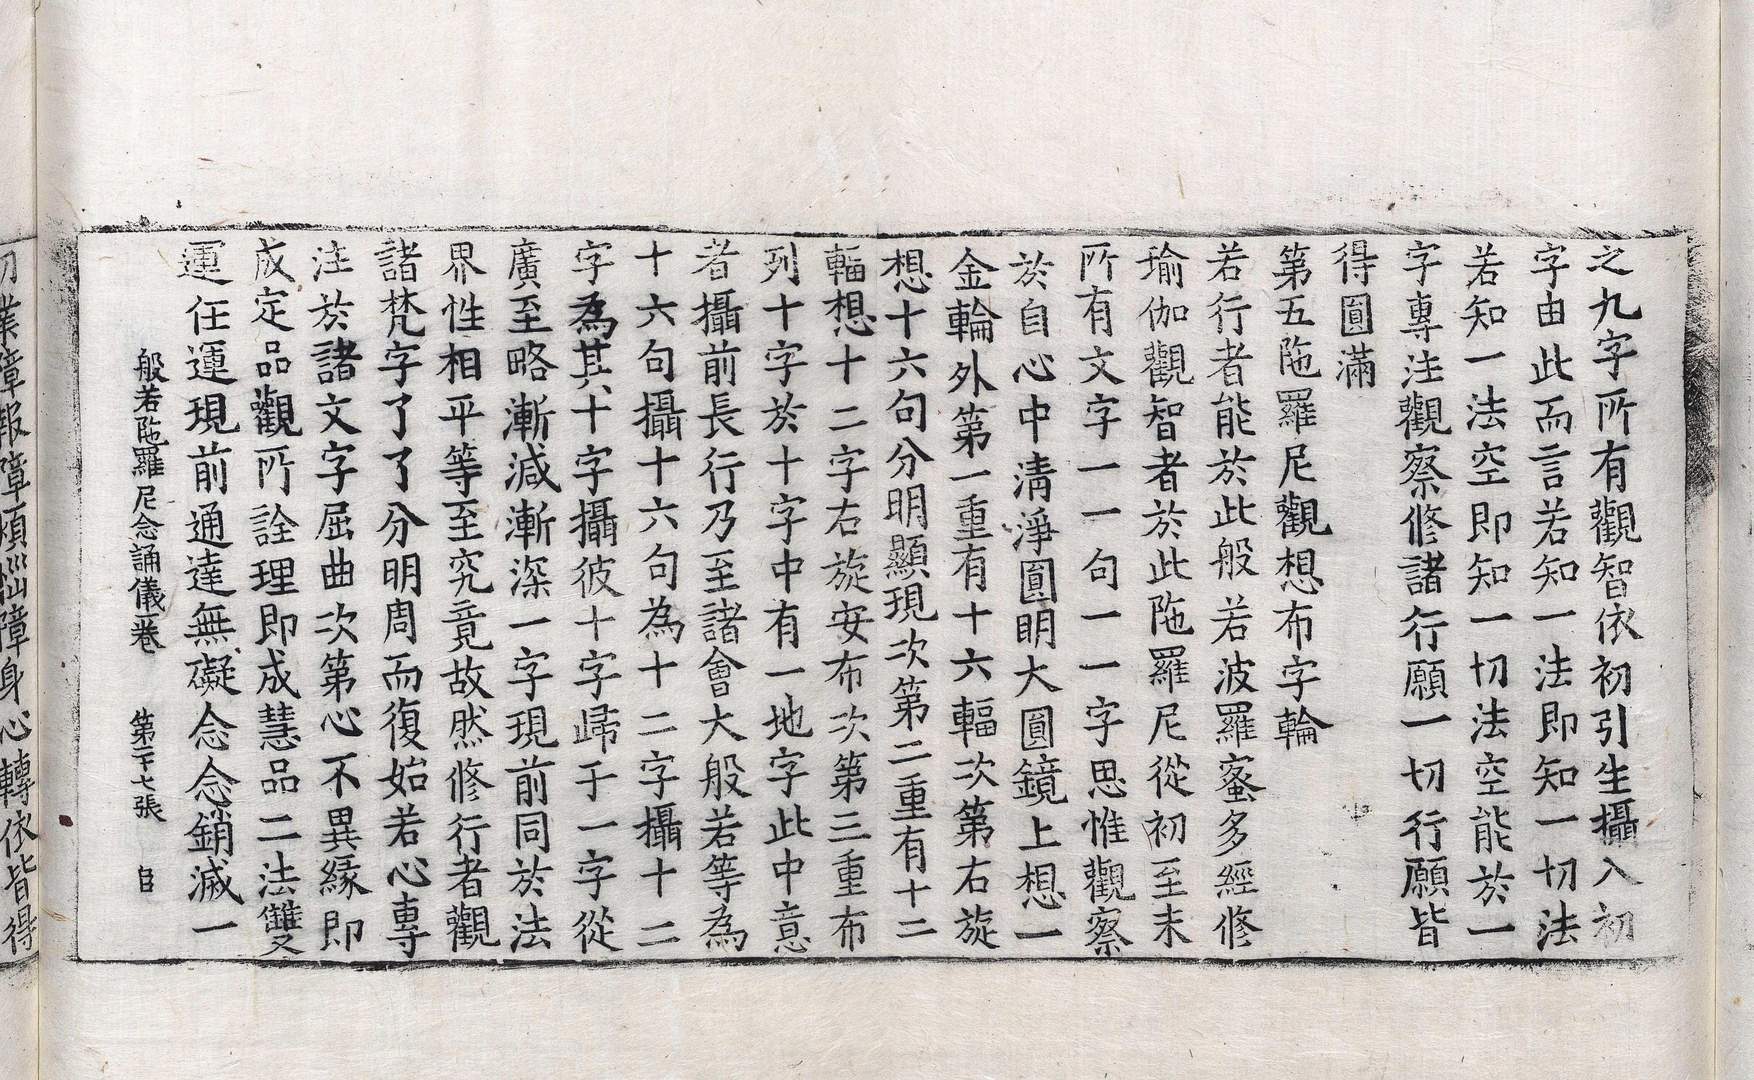 之九字所有觀智依初引生攝入初
字由此而言若知一法即知一切法
若知一法空即知一切法空能於一
字專注觀察修諸行願一切行願皆
得圓滿
第五陁羅尼觀想布字輪
若行者能於此般若波羅蜜多經修
瑜伽觀智者於此陁羅尼從初至末
所有文字一一句一一字思惟觀察
於自心中清淨圓明大圓鏡上想一
金輪外第一重有十六輻次第右旋
想十六句分明顯現次第二重有十二
輻想十二字右旋安布次第三重布
列十字於十字中有一地字此中意
者攝前長行乃至諸會大般若等為
十六句攝十六句為十二字攝十二
字為其十字攝彼十字歸于一字從
廣至略漸減漸深一字現前同於法
界性相平等至究竟故然修行者觀
諸梵字了了分明周而復始若心專
注於諸文字屈曲次第心不異緣即
成定品觀所詮理即成慧品二法雙
運任運現前通達無礙念念銷滅一
般若陁羅尼念誦儀卷 第十七張
切業障報障煩惱障身心轉依皆得